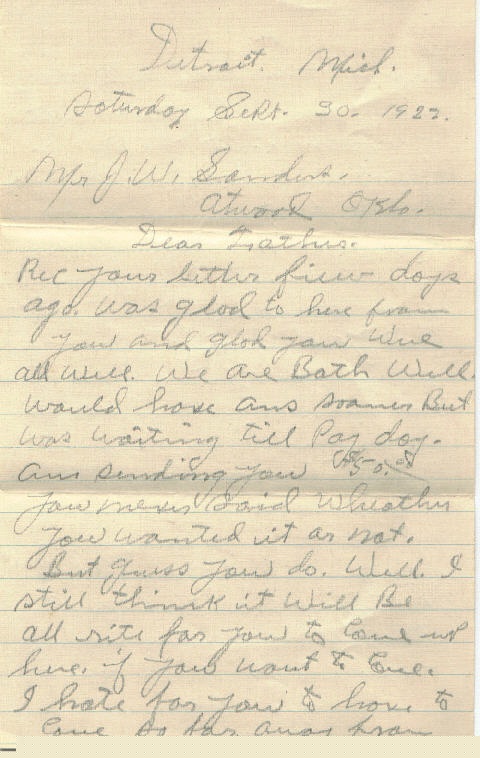 Detroit. Mich.
Saturday Sept. 30. 1922.
Mr J. W. Sanders.
Atwood Okla.
Dear Father.
Rec your letter fiew days
ago. Was glad to here from
you and glad you were
all Well. We are Both Well.
Would have ans sooner But
Was waiting till Pay day.
am sending you $50.00
you never said Wheather
you wanted it or not.
But guess you do. Well. I
still think it Will Be
all rite for you to Come up
here. if you want to Come.
I hate for you to have to
Come so far away from